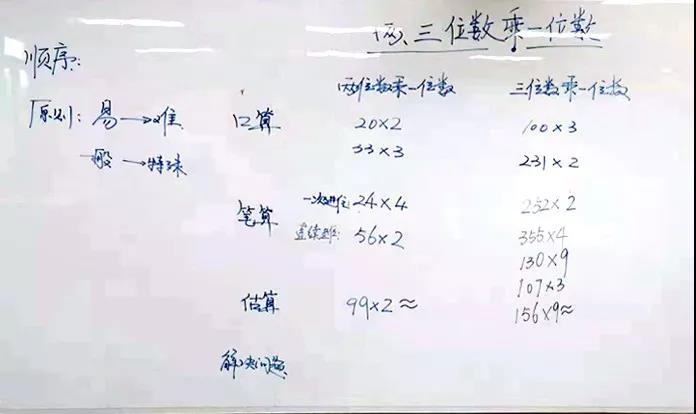 两、三位数乘一位数
顺序:
两位数乘一位数 三位数乘一位数
原则: 易→难
一般→特殊
口算 20×2 100×3
33×3 231×2
笔算 一次进位: 24×4 252×2
连续进位: 56×2 355×4
130×9
107×3
估算 99×2≈ 156×9≈
解决问题